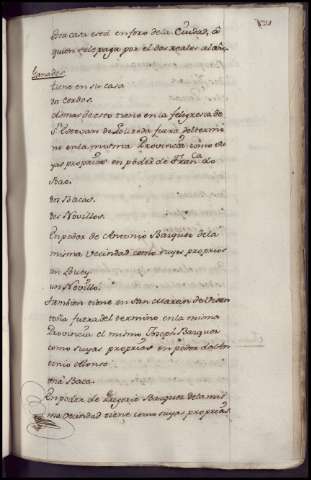 Esta casa está en foro de la Ciudad, á
quien se le paga por el dos reales al año.
Ganados
tiene en su casa
dos Cerdos.
ademas de esto tiene en la felegresia de
Sn. Estevan de fuera del termi
no en la misma Provincia como su
yas proprias en poder de Franca. do
Bac.
dos Bacas.
dos Novillos.
En poder de Antonio Bazquez de la
misma Vecindad como suyos proprios
un Buey
un Novillo.
tambien tiene en San Martin de
fuera del termino en la misma
Provincia el mismo Joseph Bazquez
como suyas proprias en poder de An
tonio Alonso
una Baca.
En poder de Gregorio Bazquez de la mis
ma Vecindad tiene como suyas proprias